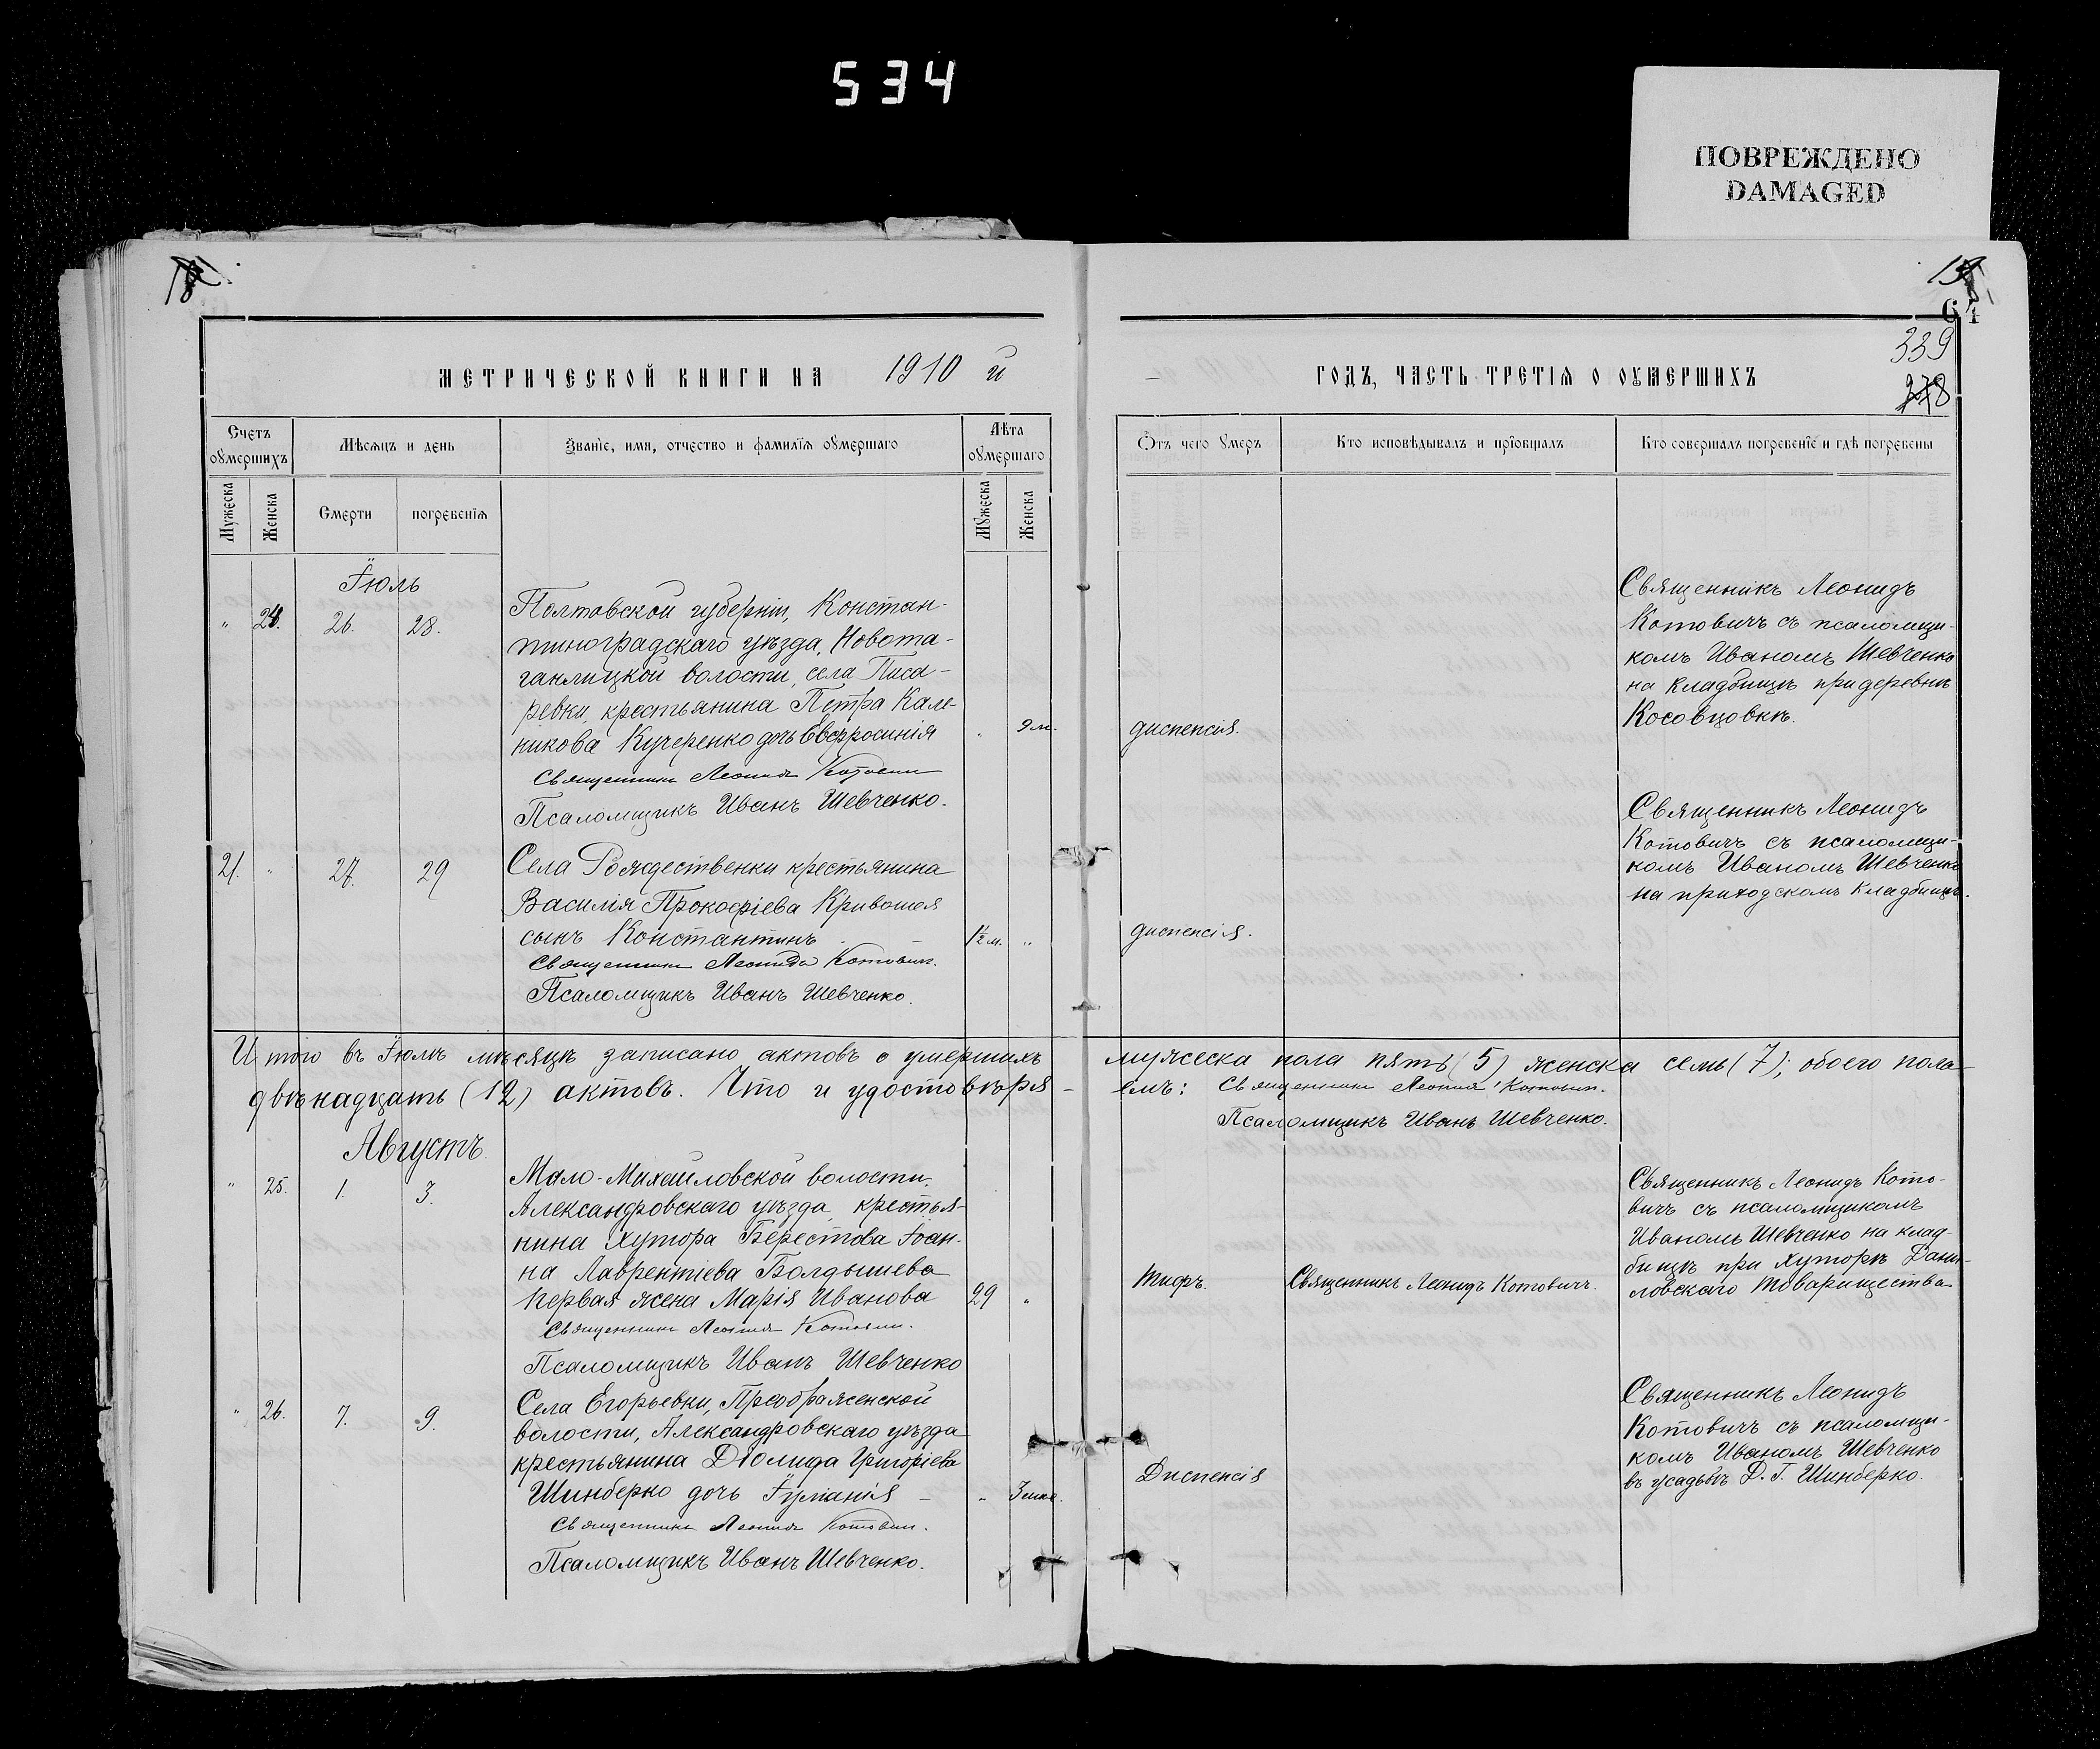 534
ПОВРЕЖДЕНО
DAMAGED
64
339
278
МЕТРИЧЕСКОЙ КНИГИ НА 1910 й
ГОДЪ, ЧАСТЬ ТРЕТІЯ О ОУМЕРШИХЪ
Счетъ оумершихъ
Мѣсяцъ и день
Званіе, имя, отчество и фамилія оумершаго
Лѣта оумершаго
Отъ чего умеръ
Кто исповѣдывалъ и пріобщалъ
Кто совершалъ погребеніе и гдѣ погребены
Мужеска
Женска
Смерти
погребенія
Мужеска
Женска
Іюль
" 24. 26. 28.
Полтовской губерніи, Констан-
тиноградскаго уѣзда, Новота-
ганлицкой волости, села Писа-
ревки, крестьянина Петра Кале-
никова Кучеренко дочь Евфросинія
" 9 м.
диспепсія.
Священникъ Леонидъ Котовичъ
Псаломщикъ Иванъ Шевченко.
Священникъ Леонидъ
Котовичъ съ псаломщи-
комъ Иваномъ Шевченко
на кладбищѣ при деревнѣ
Косовцовкѣ.
21. " 27. 29
Села Рождественки крестьянина
Василія Прокофіева Кривошея
сынъ Константинъ
1½ м. "
диспепсія.
Священникъ Леонидъ Котовичъ.
Псаломщикъ Иванъ Шевченко.
Священникъ Леонидъ
Котовичъ съ псаломщи-
комъ Иваномъ Шевченко
на приходскомъ кладбищѣ.
Итого въ Іюлѣ мѣсяцѣ записано актовъ о умершихъ мужеска пола пять (5) женска семь (7); обоего пола
двѣнадцать (12) актовъ. Что и удостовѣря-
емъ: Священникъ Леонидъ Котовичъ.
Псаломщикъ Иванъ Шевченко.
Августъ.
" 25. 1. 3.
Мало-Михайловской волости,
Александровскаго уѣзда, крестья-
нина хутора Берестова Іоан-
на Лаврентіева Болдышева
первая жена Марія Иванова
29 "
Тифъ.
Священникъ Леонидъ Котовичъ.
Священникъ Леонидъ Котовичъ.
Псаломщикъ Иванъ Шевченко
Священникъ Леонидъ Кото-
вичъ съ псаломщикомъ
Иваномъ Шевченко на клад-
бищѣ при хуторѣ Дани-
ловскаго Товарищества
" 26. 7. 9.
Села Егорьевки, Преображенской
волости, Александровскаго уѣзда
крестьянина Діомида Григоріева
Шинберко дочь Іуліанія
"
Диспепсія
Священникъ Леонидъ Котовичъ.
Псаломщикъ Иванъ Шевченко.
Священникъ Леонидъ
Котовичъ съ псаломщи-
комъ Иваномъ Шевченко
въ усадьбѣ Д. Г. Шинберко.